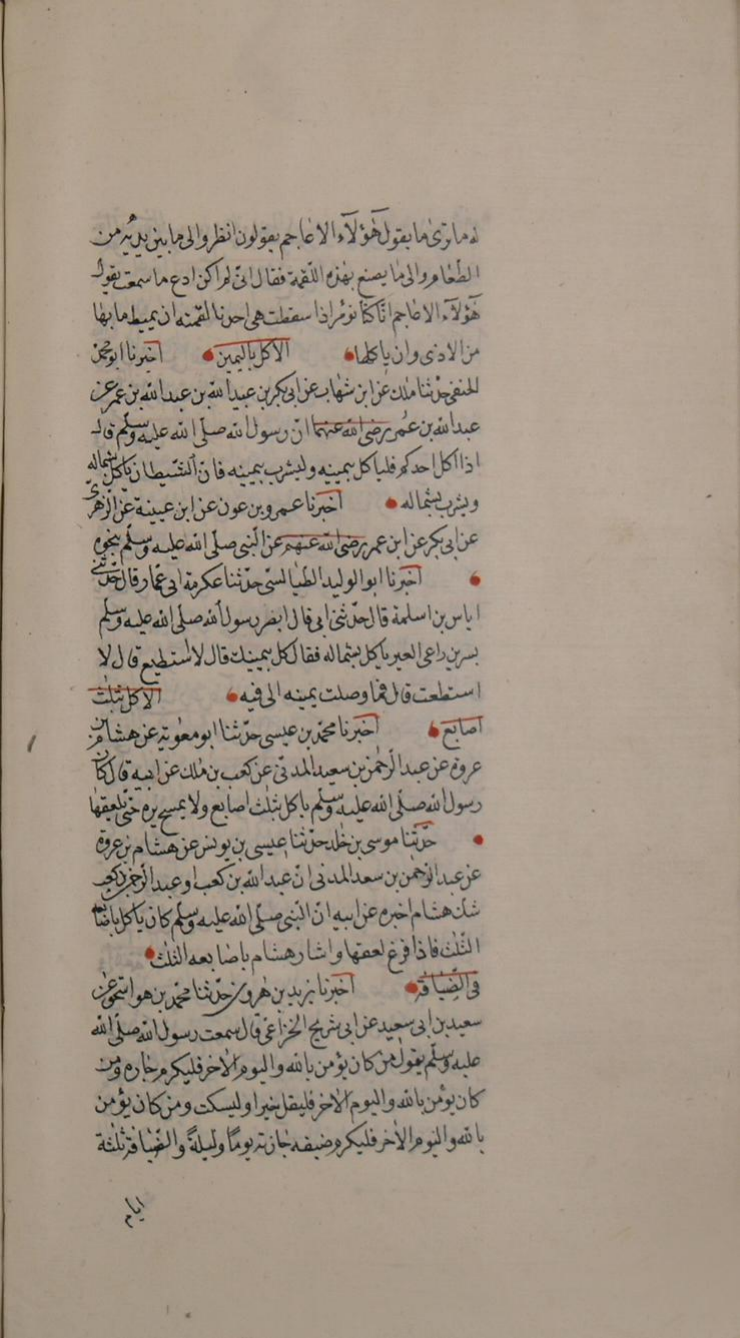 له ما ترى ما يقول هؤلاء الاعاجم يقولون انظروا الى ما بين يديه من
الطعام والى ما يصنع بهذه اللقمة فقال انى لم اكن ادع ما سمعت بقول
هؤلاء الاعاجم انا كنا نؤمر اذا سقطت من احدنا لقمته ان يميط ما بها
من الاذى وان ياكلها الاكل باليمين اخبرنا ابو محمد
الحنفى حدثنا ملك عن ابن شهاب عن ابى بكر بن عبيد الله بن عبد الله بن عمر عن
عبد الله بن عمر رضى الله عنهما ان رسول الله صلى الله عليه وسلم قال
اذا اكل احدكم فليأكل بيمينه وليشرب بيمينه فان الشيطان ياكل بشماله
ويشرب بشماله اخبرنا عمرو بن عون عن ابن عيينة عن الزهرى
عن ابى بكر عن ابن عمر رضى الله عنهم عن النبى صلى الله عليه وسلم بنحوه
اخبرنا ابو الوليد الطيالسى حدثنا عكرمة ابى عمار قال حدثنى
اياس بن اسلمة قال حدثنى ابى قال ابصر رسول الله صلى الله عليه وسلم
بسر بن راعى العير ياكل بشماله فقال كل بيمينك قال لا استطيع قال لا
استطعت قال فما وصلت يمينه الى فيه الاكل بثلث
اصابع اخبرنا محمد بن عيسى حدثنا ابو معوية عن هشام بن
عروة عن عبد الرحمن بن سعيد المدنى عن كعب بن ملك عن ابيه قال كان
رسول الله صلى الله عليه وسلم ياكل بثلث اصابع ولا يمسح يده حتى يلعقها
حدثنا موسى بن خلد حدثنا عيسى بن يونس عن هشام بن عروة
عن عبد الرحمن بن سعد المدنى ان عبد الله بن كعب او عبد الرحمن بن كعب
شك هشام اخبره عن ابيه ان النبى صلى الله عليه وسلم كان ياكل باصابعه
الثلث فاذا فرغ لعقها واشار هشام باصابعه الثلث
فى الضيافة اخبرنا يزيد بن هرون حدثنا محمد بن هو اسحق عن
سعيد بن ابى سعيد عن ابى شريح الخزاعى قال سمعت رسول الله صلى الله
عليه وسلم يقول من كان يؤمن بالله واليوم الاخر فليكرم جاره ومن
كان يؤمن بالله واليوم الاخر فليقل خيرا او ليسكت ومن كان يؤمن
بالله واليوم الاخر فليكرم ضيفه جازته يوماً وليلةً والضيافة ثلثة
ايام